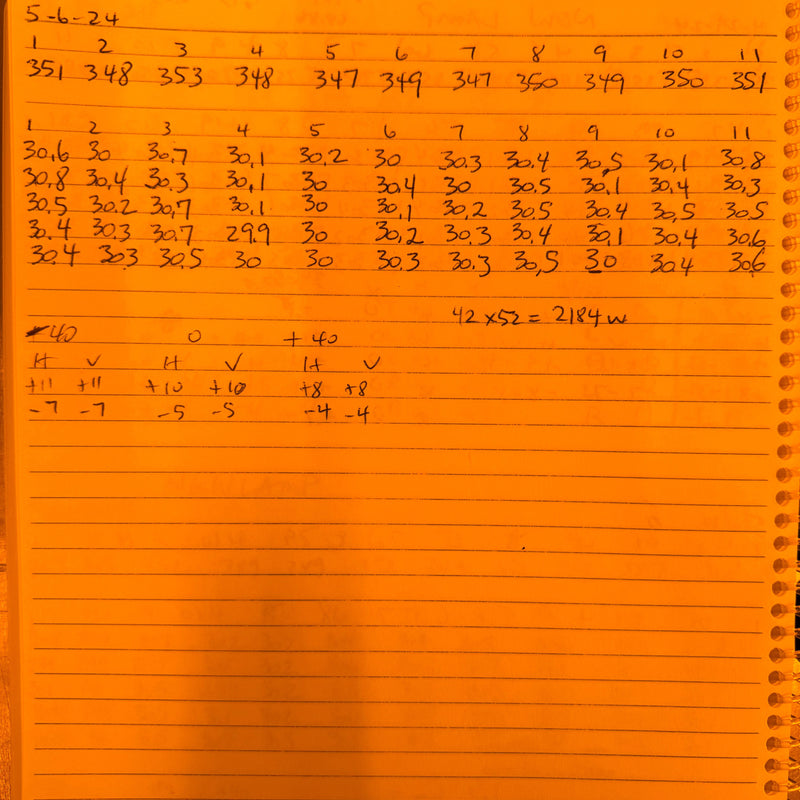 5-6-24
1 2 3 4 5 6 7 8 9 10 11
351 348 353 348 347 349 347 350 349 350 351
1 2 3 4 5 6 7 8 9 10 11
30.6 30 30.7 30.1 30.2 30 30.3 30.4 30.5 30.1 30.8
30.8 30.4 30.3 30.1 30 30.4 30 30.5 30.1 30.4 30.3
30.5 30.2 30.7 30.1 30 30.1 30.2 30.5 30.4 30.5 30.5
30.4 30.3 30.7 29.9 30 30.2 30.3 30.4 30.1 30.4 30.6
30.4 30.3 30.5 30 30 30.3 30.3 30.5 30 30.4 30.6
42 x 52 = 2184 w
-40 0 +40
H V H V H V
+11 +11 +10 +10 +8 +8
-7 -7 -5 -5 -4 -4